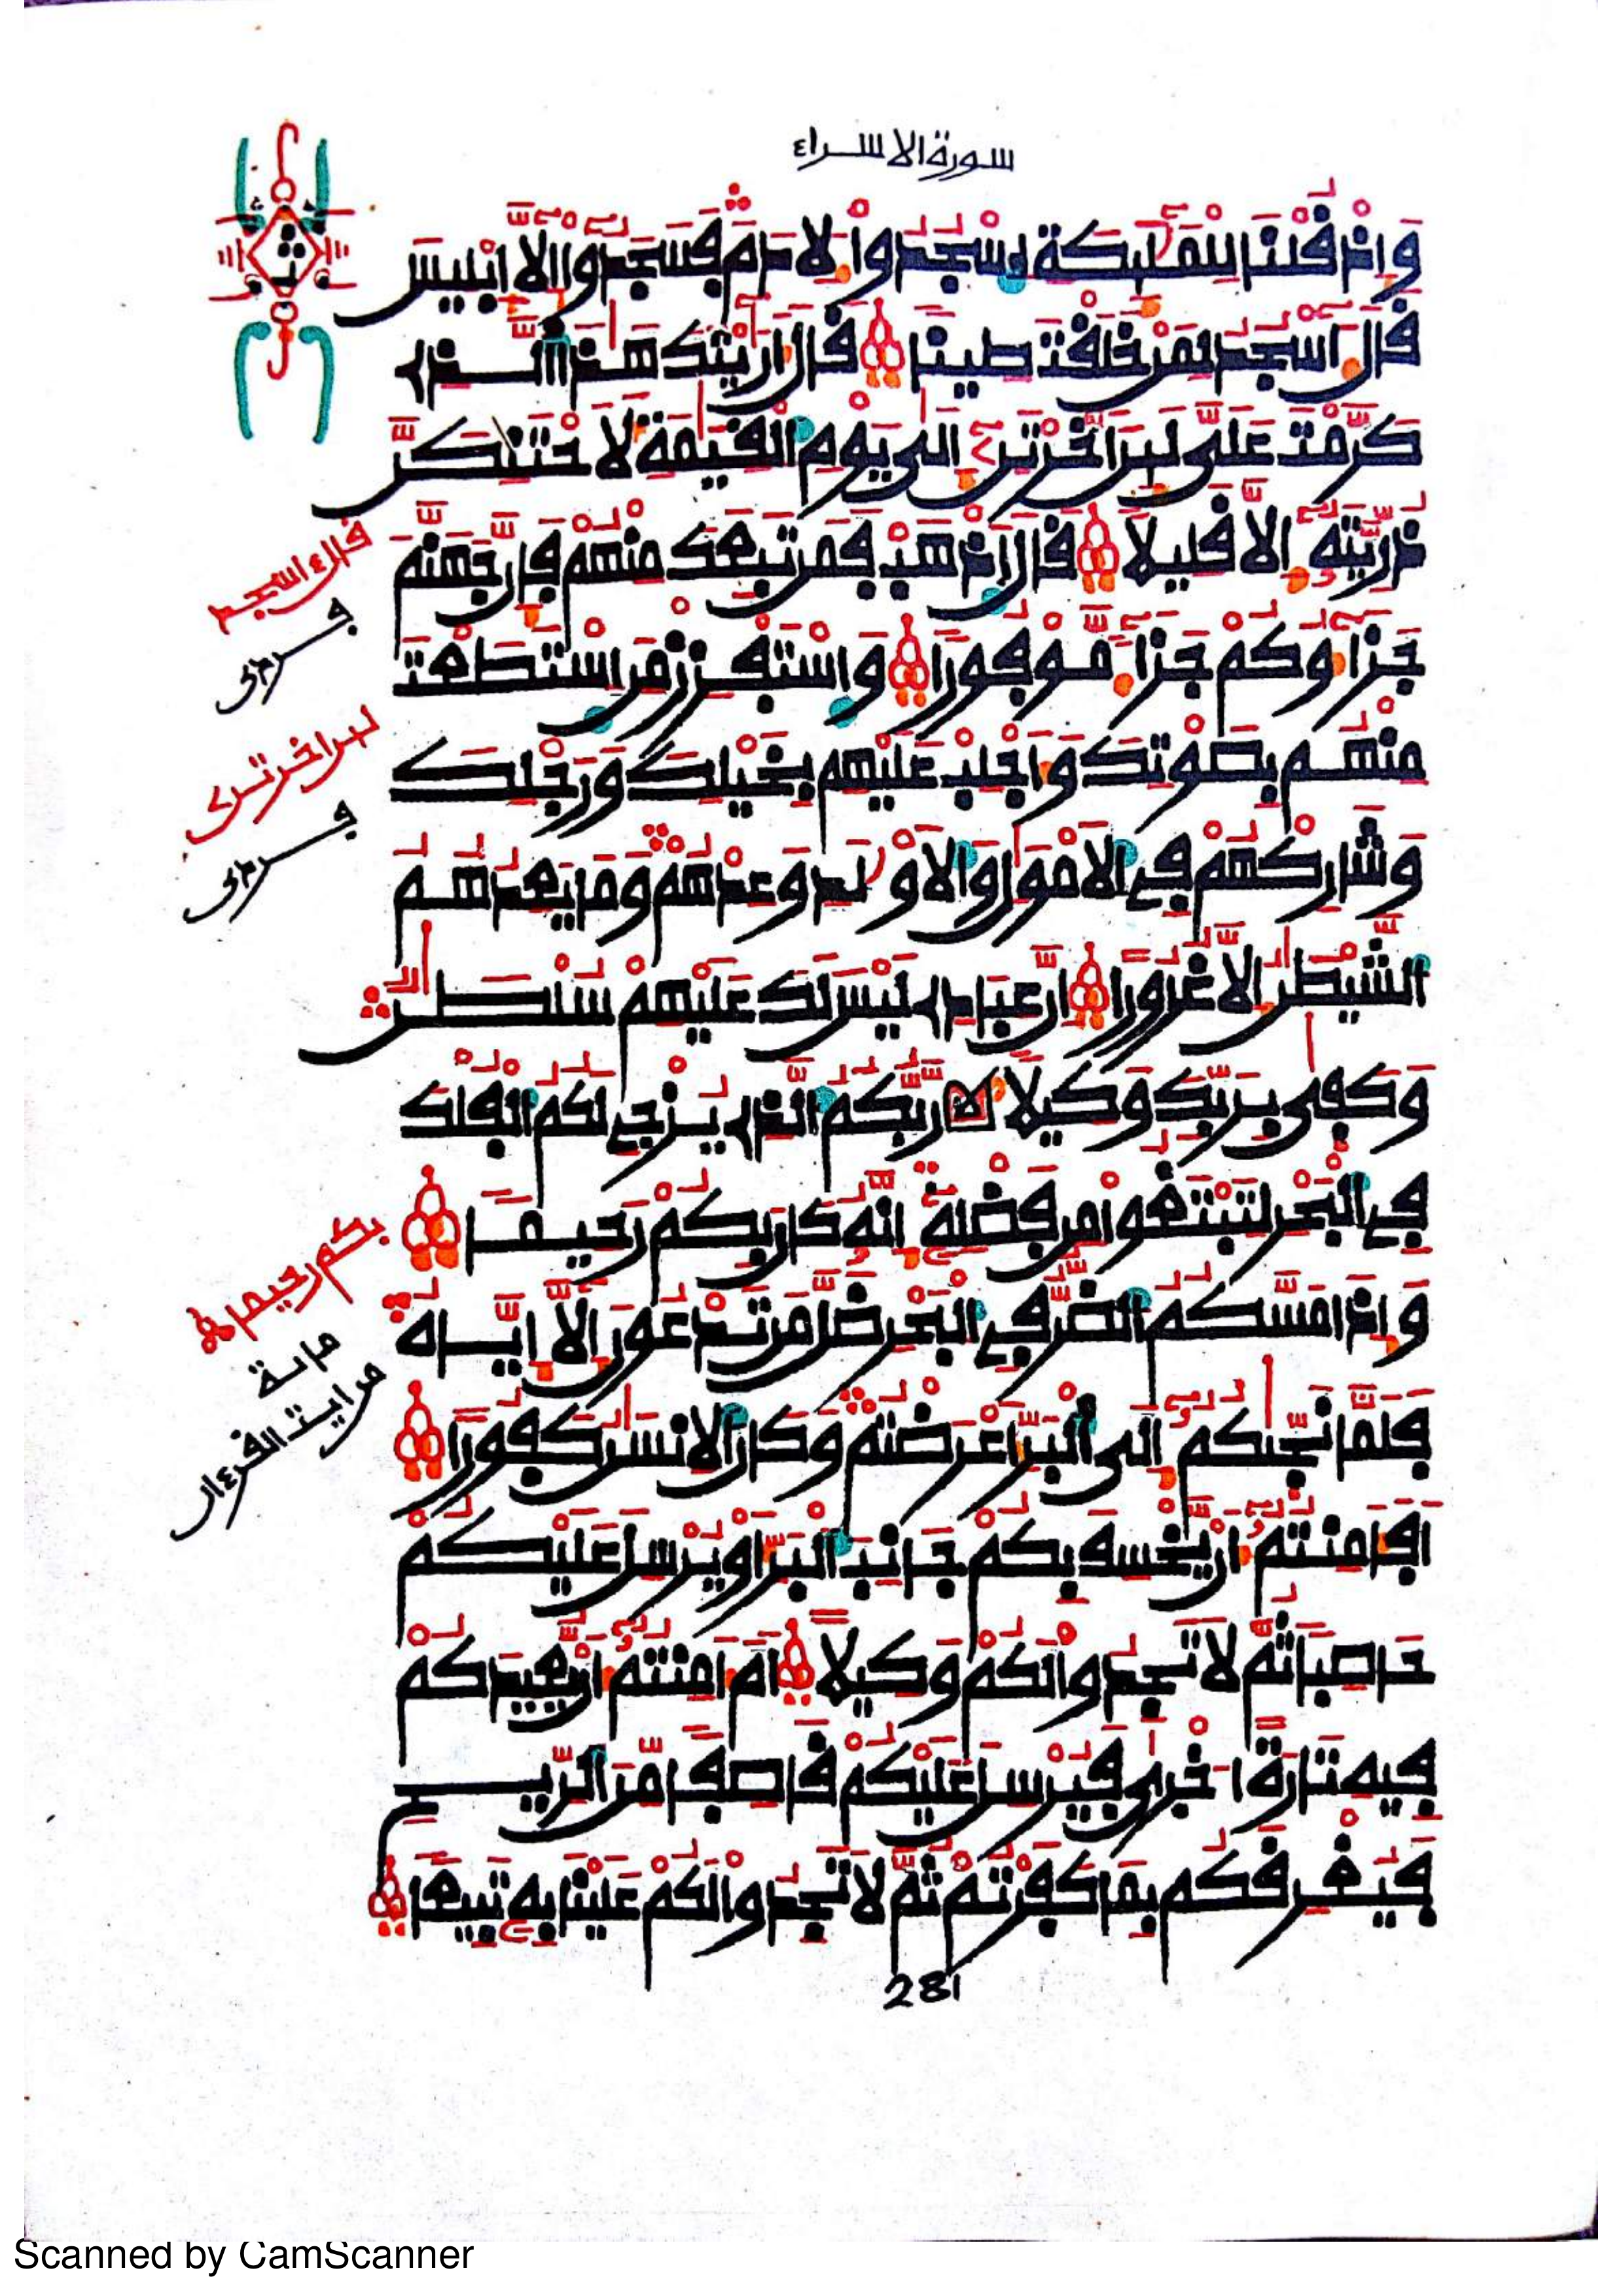 سورة الاسراء
وَإِذْ قُلْنَا لِلْمَلَٰٓئِكَةِ اِ۟سْجُدُواْ لِأٓدَمَ فَسَجَدُوٓاْ إِلَّآ إِبْلِيسَ
قَالَ ءَآسْجُدُ لِمَنْ خَلَقْتَ طِينٗا قَالَ أَرَٰٓيْتَكَ هَٰذَا اَ۬لذِے
كَرَّمْتَ عَلَيَّ لَئِنَ اَخَّرْتَنِۦٓ إِلَىٰ يَوْمِ اِ۬لْقِيَٰمَةِ لَأَحْتَنِكَنَّ
ذُرِّيَّتَهُۥٓ إِلَّا قَلِيلٗا قَالَ اَ۪ذْهَبْ فَمَن تَبِعَكَ مِنْهُمْ فَإِنَّ جَهَنَّمَ
جَزَآؤُكُمْ جَزَآءٗ مَّوْفُورٗا وَاسْتَفْزِزْ مَنِ اِ۪سْتَطَعْتَ
مِنْهُم بِصَوْتِكَ وَأَجْلِبْ عَلَيْهِم بِخَيْلِكَ وَرَجْلِكَ
وَشَارِكْهُمْ فِے اِ۬لَامْوَٰلِ وَالَاوْلَٰدِ وَعِدْهُمْ وَمَا يَعِدُهُمُ
اُ۬لشَّيْطَٰنُ إِلَّا غُرُوراً اِنَّ عِبَادِے لَيْسَ لَكَ عَلَيْهِمْ سُلْطَٰنٞ
وَكَفَىٰ بِرَبِّكَ وَكِيلٗا رَّبُّكُمُ اُ۬لذِے يُزْجِے لَكُمُ اُ۬لْفُلْكَ
فِے اِ۬لْبَحْرِ لِتَبْتَغُواْ مِن فَضْلِهِۦٓ إِنَّهُۥ كَانَ بِكُمْ رَحِيمٗا
وَإِذَا مَسَّكُمُ اُ۬لضُّرُّ فِے اِ۬لْبَحْرِ ضَلَّ مَن تَدْعُونَ إِلَّآ إِيَّاهُ
فَلَمَّا نَجَّيٰكُمُۥٓ إِلَى اَ۬لْبَرِّ أَعْرَضْتُمْ وَكَانَ اَ۬لِانسَٰنُ كَفُوراً
اَفَأَمِنتُمُۥٓ أَنْ يَّخْسِفَ بِكُمْ جَانِبَ اَ۬لْبَرِّ أَوْ يُرْسِلَ عَلَيْكُمْ
حَاصِباٗ ثُمَّ لَا تَجِدُواْ لَكُمْ وَكِيلاً اَمَ اَمِنتُمُۥٓ أَنْ يُّعِيدَكُمْ
فِيهِ تَارَةً ا۟خْرَىٰ فَيُرْسِلَ عَلَيْكُمْ قَاصِفاٗ مِّنَ اَ۬لرِّيحِ
فَيُغْرِقَكُم بِمَا كَفَرْتُمْ ثُمَّ لَا تَجِدُواْ لَكُمْ عَلَيْنَا بِهِۦ تَبِيعٗا
281
قال ءاسجد
لين اخرتن
بكم رحيما
ماية
من ايت القرءان
Scanned by CamScanner